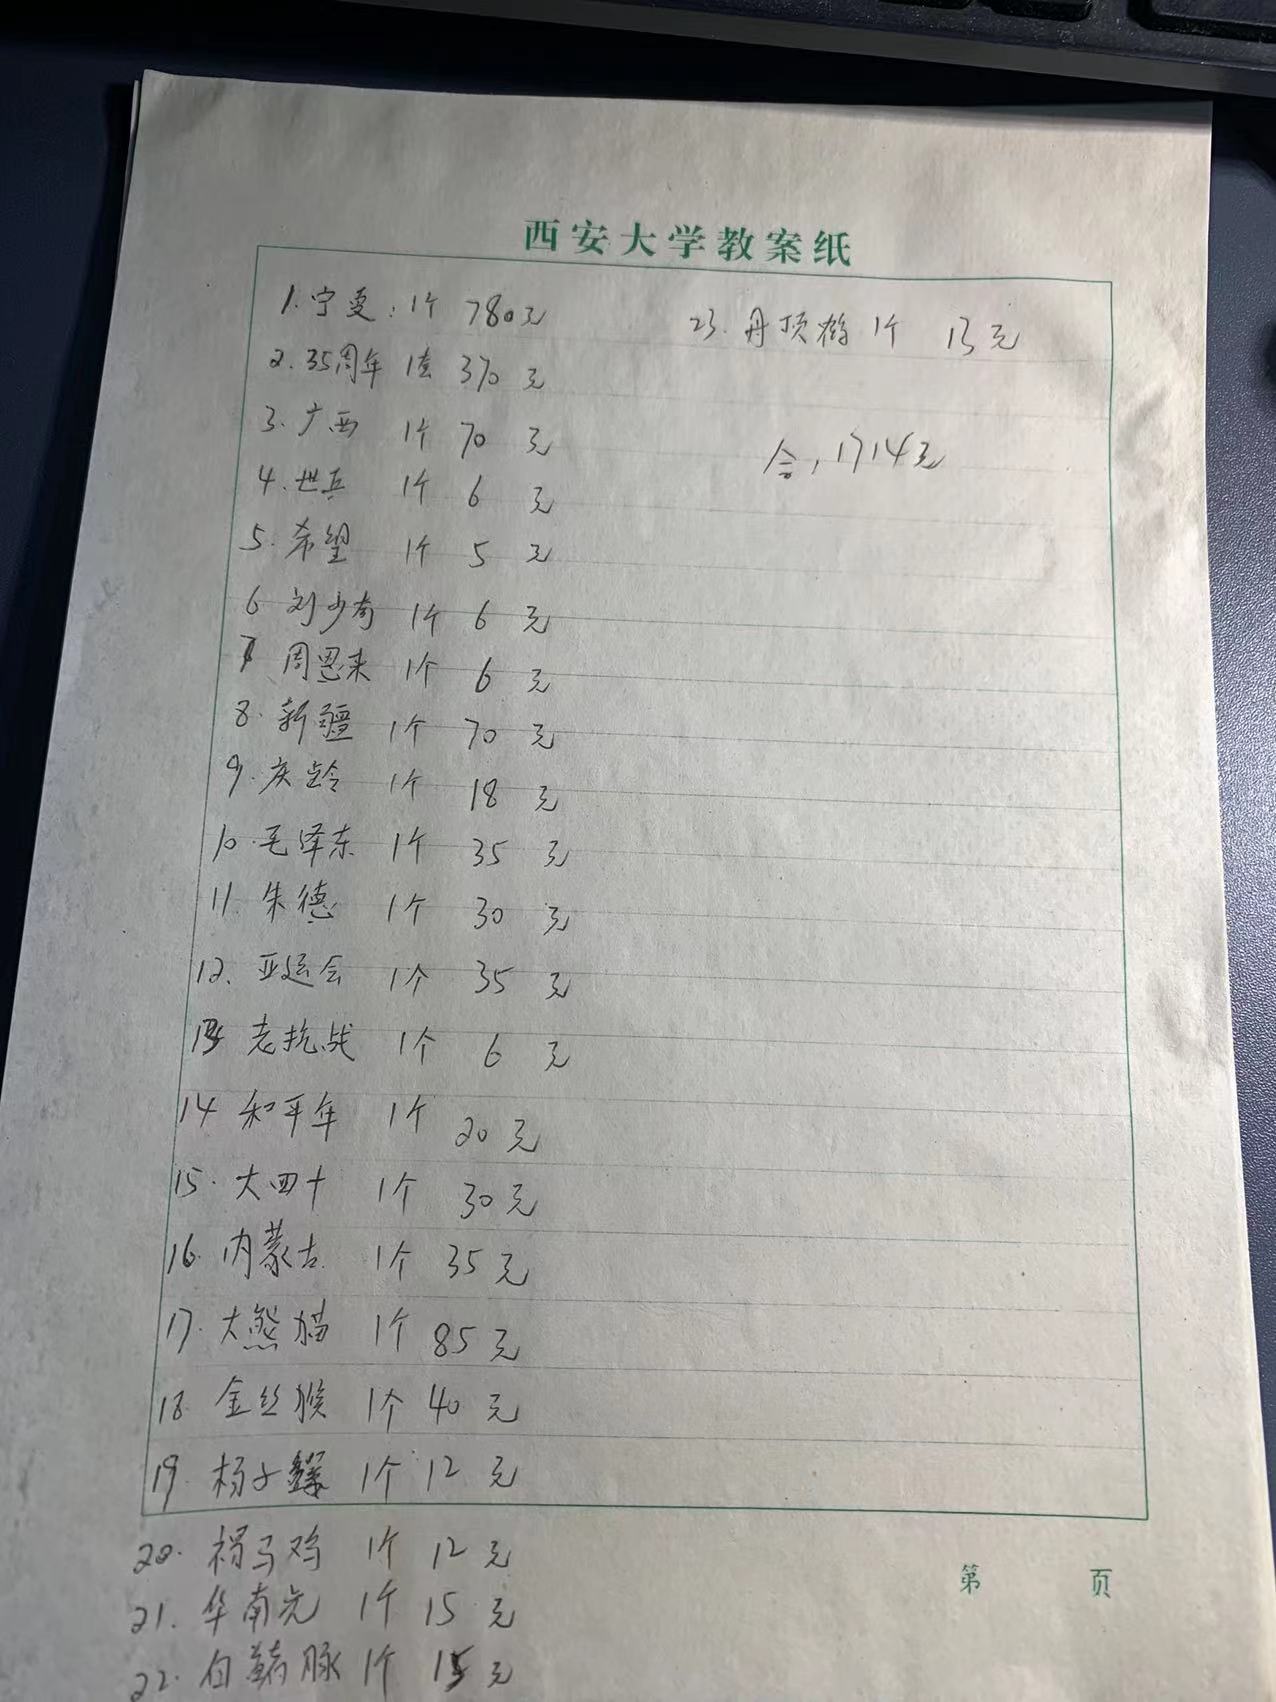 西安大学教案纸
1. 宁夏: 1个 780元
2. 35周年 1套 370元
3. 广西 1个 70元
4. 世兵 1个 6元
5. 希望 1个 5元
6 刘少奇 1个 6元
7 周恩来 1个 6元
8. 新疆 1个 70元
9. 庆龄 1个 18元
10. 毛泽东 1个 35元
11. 朱德 1个 30元
12. 亚运会 1个 35元
13 老抗战 1个 6元
14 和平年 1个 20元
15. 大四十 1个 30元
16. 内蒙古 1个 35元
17. 大熊猫 1个 85元
18 金丝猴 1个 40元
19. 杨子 1个 12元
20. 褐马鸡 1个 12元
21. 华南虎 1个 15元
22. 白 豚 1个 15元
23. 丹顶鹤 1个 13元
合, 1714元
第 页